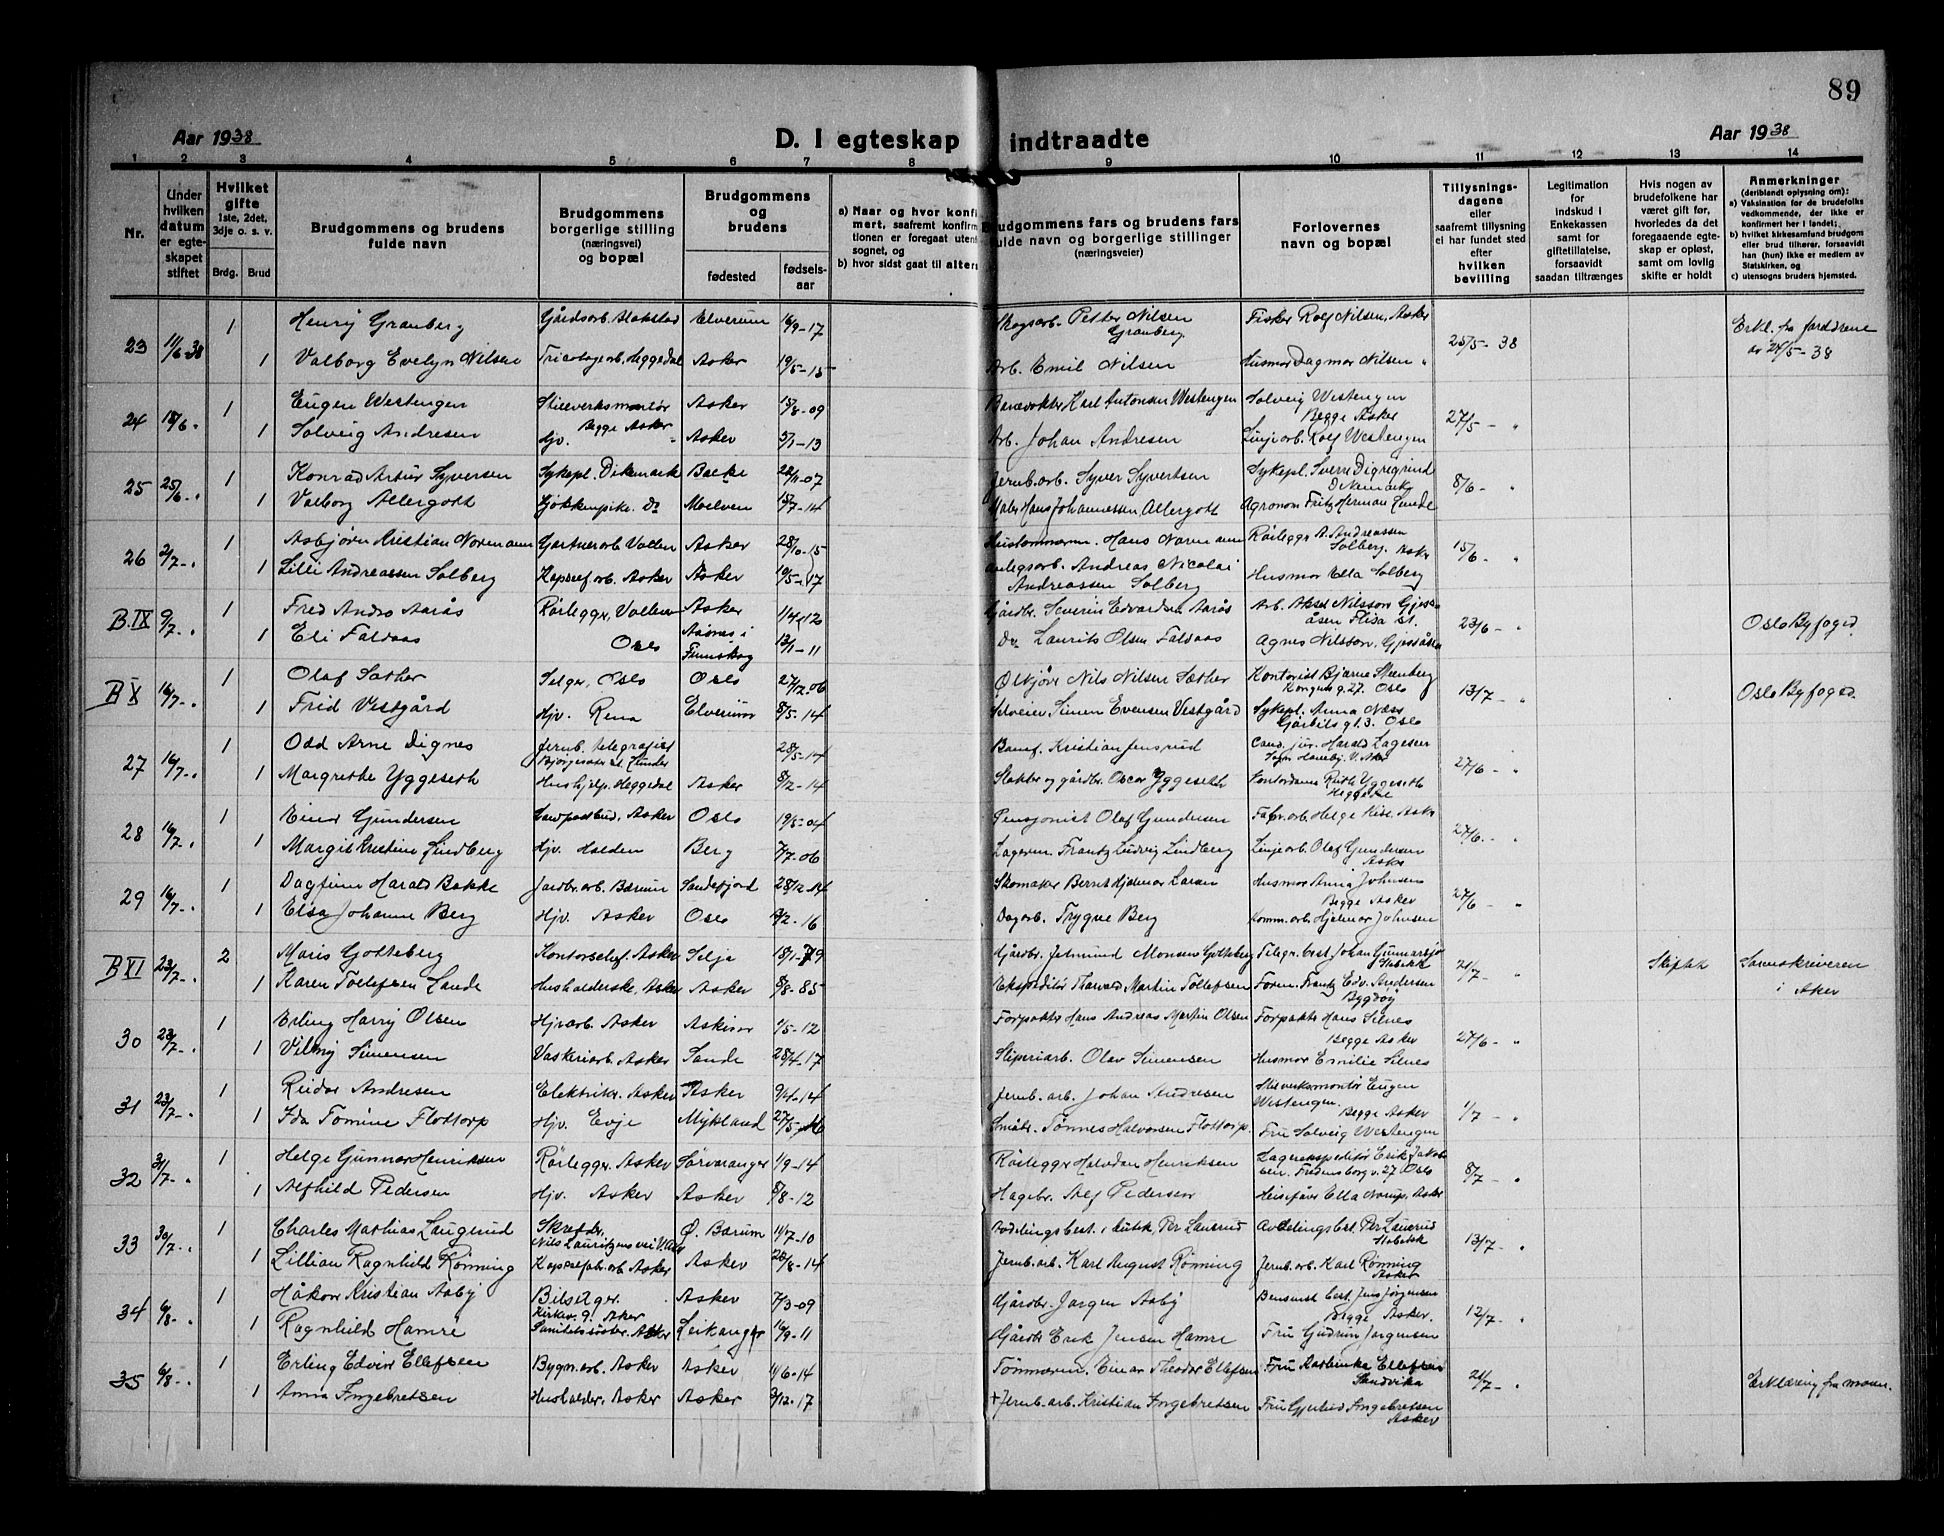 89
Aar 1938
D. I egteskap indtraadte
Aar 1938
1 2 3 4 5 6 7 8 9 10 11 12 13 14
Nr.
Under hvilken datum er egteskapet stiftet
Hvilket gifte
1ste, 2det, 3dje o. s. v.
Brdg. Brud
Brudgommens og brudens fulde navn
Brudgommens borgerlige stilling (næringsvei) og bopæl
Brudgommens og brudens
fødested
fødselsaar
a) Naar og hvor konfi
mert, saafremt konfirm
tionen er foregaat utenf
sognet, og
b) hvor sidst gaat til alters
Brudgommens fars og brudens fars
fulde navn og borgerlige stillinger
(næringsveier)
Forlovernes navn og bopæl
Tillysningsdagene
eller
saafremt tillysning
ei har fundet sted
efter
hvilken
bevilling
Legitimation
for
indskud i
Enkekassen
samt for
giftetillatelse,
forsaavidt
saadan tiltrænges
Hvis nogen av
brudefolkene har
været gift før,
hvorledes da det
foregaaende egteskap er opløst,
samt om lovlig
skifte er holdt
Anmerkninger
(deriblandt oplysning om):
a) Vaksination for de brudefolks
vedkommende, der ikke er
konfirmert her i landet;
b) hvilket kirkesamfund brudgom
eller brud tilhører, forsaavidt
han (hun) ikke er medlem av
Statskirken, og
c) utensogns bruders hjemsted.
23 11/6 38 1 Henry Granberg Gårdsarb. Elverum 16/9-17 Skogsarb. Petter Nilsen Granberg Fisker Rolf Nilsen, Asker 25/5-38 Erkl. fra foreldrene
1 Valborg Evelyn Nilsen Tricotagearb. Heggedal Asker 19/5-15 Arb. Emil Nilsen Husmor Dagmar Nilsen " av 24/5-38
24 18/6 1 Eugen Westengen Stilverksmontør Asker 15/8-09 Banevokter Karl Antonsen Westengen Solveig Westengen
Begge Asker Begge Asker 27/5 - "
1 Solveig Andresen Hjv. " Asker 5/1-13 Arb. Johan Andresen Linjearb. Rolf Westengen
25 25/6 1 Konrad Artur Syversen Sykepl. Dikemark Bække 22/11-07 Jernb.arb. Syver Syvertsen Sykepl. Sverre Digregrind Dikemark 8/6 - "
1 Valborg Allergodt Kjøkkenpike. Do Moelven 15/7-14 Hans Johannessen Allergodt Agronom Fritz Herman Lunde
26 2/7 1 Asbjørn Kristian Normann Gartnerarb Vollen Asker 28/10-15 Hans Normann Rørleggr A. Andreassen Solberg, Asker 15/6 "
1 Lilli Andreassen Solberg Kapselarb. Asker Asker 19/5-17 Anlegsarb. Andreas Nicolai Andreassen Solberg Husmor Ella Solberg
B.IX 9/7 1 Fred Andro Aarås Rørlegger, Vollen Asker 1/4-12 Gårdbr. Severin Edvardsen Aarås Arb. Aksel Nilsson Gjesåsen Flisa st. 23/6 - " Oslo Byfoged.
1 Eli Faldaas Oslo Åsnes i Finnskog 13/1-11 Do Laurits Olsen Faldaas Agnes Nilsson, Gjesåsen
B X 16/7 1 Olaf Sæther Selger, Oslo Oslo 27/12-06 Ølkjører Nils Nilsen Sæther Kontorist Bjarne Stenberg Kongens g. 27. Oslo 13/7 - " Oslo Byfoged.
1 Frid Vestgård Hjv. Rena Elverum 8/5-14 Selveier Simen Evensen Vestgård Sykepl. Anna Næss Gjørbits gt. 3. Oslo
27 16/7 1 Odd Arne Dignes Jernb. telegrafist 28/5-14 Banef. Kristian Jensrud Cand. jur. Harald Lagesen V. Aker 27/6 - "
1 Margrethe Yggeseth Hushjelp, Heggedal Asker 8/12-14 Slakter og gårdbr. Oscar Yggeseth Kontordame Ruth Yggeseth Heggedal
28 16/7 1 Einar Gundersen Landpostbud, Asker Oslo 19/5-04 Pensjonist Olaf Gundersen Fabr.arb. Helge Kise, Asker 27/6 - "
1 Margit Kristine Lindberg Hjv. Halden Berg 7/7-06 Lagerm. Frantz Ludvig Lindberg Linjearb. Olaf Gundersen Asker
29 16/7 1 Dagfinn Harald Bakke Jordbr.arb. Bærum Sandefjord 28/12-14 Skomaker Bernt Hjalmar Larsen Husmor Anna Johnsen Begge Asker 27/6 "
1 Elsa Johanne Berg Hjv. Asker Oslo 2/2-16 Dagarb. Trygve Berg Komm.arb. Hjelmar Johnsen
B XI 23/7 2 Maris Gotteberg Kontorchef. Asker Selja 18/1-79 Gårdbr. Jetmund Monsen Gotteberg Telegr.best. Johan Gunnarsjø Stabekk 21/7 - " Skiftet Sorenskriveren
1 Karen Tollefsen Lande Husholderske, Asker Asker 8/8-85 Ekspeditør Thorvald Martin Tollefsen Form. Frantz Edv. Andersen Bygdøy i Aker
30 23/7 1 Erling Harry Olsen Hjv.arb. Asker Askim 1/5-12 Forpakter Hans Andreas Martin Olsen Forpakter Hans Silnes
Begge Asker 27/6 - "
1 Vilmy Simensen Vaskeriarb. Asker Sande 28/4-17 Sliperiarb. Olav Simensen Husmor Emilie Silnes
31 23/7 1 Reidar Andresen Elektrikr. Asker Asker 9/4-14 Jernb. arb. Johan Andresen Stilverksmontør Eugen Westengen. Begge Asker 1/7 - "
1 Ida Tomine Flottorp Hjv. Evje Mykland 27/5-16 Småbr. Tønnes Halvorsen Flottorp. Fru Solveig Westengen
32 31/7 1 Helge Gunnar Henriksen Rørlegger. Asker Sørvaranger 1/9-14 Rørlegger Halvdan Henriksen Lagerekspeditør Erik Jakobsen. Fredensborg v. 27 Oslo 8/7 - "
1 Alfhild Pedersen Hjv. Asker Asker 8/8-12 Hagebr. Alf Pedersen Ella Norup, Asker
33 30/7 1 Charles Mathias Laugerud Skredder, Nils Lauritzens vei V. Aker Ø. Bærum 11/7-10 Avdelingsbest. i butik, Per Laurud Avdelingsbest. Per Laurud Stabekk 13/7 - "
1 Lillian Ragnhild Rønning Kapselfabr.arb Asker Asker 20/8-14 Jernb. arb. Karl August Rønning Jernb. arb. Karl Rønning Asker
34 6/8 1 Håkon Kristian Aaby Bileiger. Kirkev. 9. Asker Asker 7/3-09 Gårdbr. Jørgen Aaby Bensinst. best. Jens Jørgensen Begge Asker. 12/7 - "
1 Ragnhild Hamre Sanitetssøster. Asker Leikanger 16/9-11 Gårdbr. Erik Jensen Hamre Fru Gudrun Jørgensen
35 6/8 1 Erling Edvin Ellefsen Bygn.arb. Asker Asker 11/6-14 Tømmerm. Einar Theodor Ellefsen Fru Ellefsen Sandvika 21/7 - " Erklæring fra moren.
1 Anna Ingebretsen Husholder. Asker Asker 2/12-17 + Jernb. arb. Kristian Ingebretsen Fru Gjerlaud Ingebretsen Asker